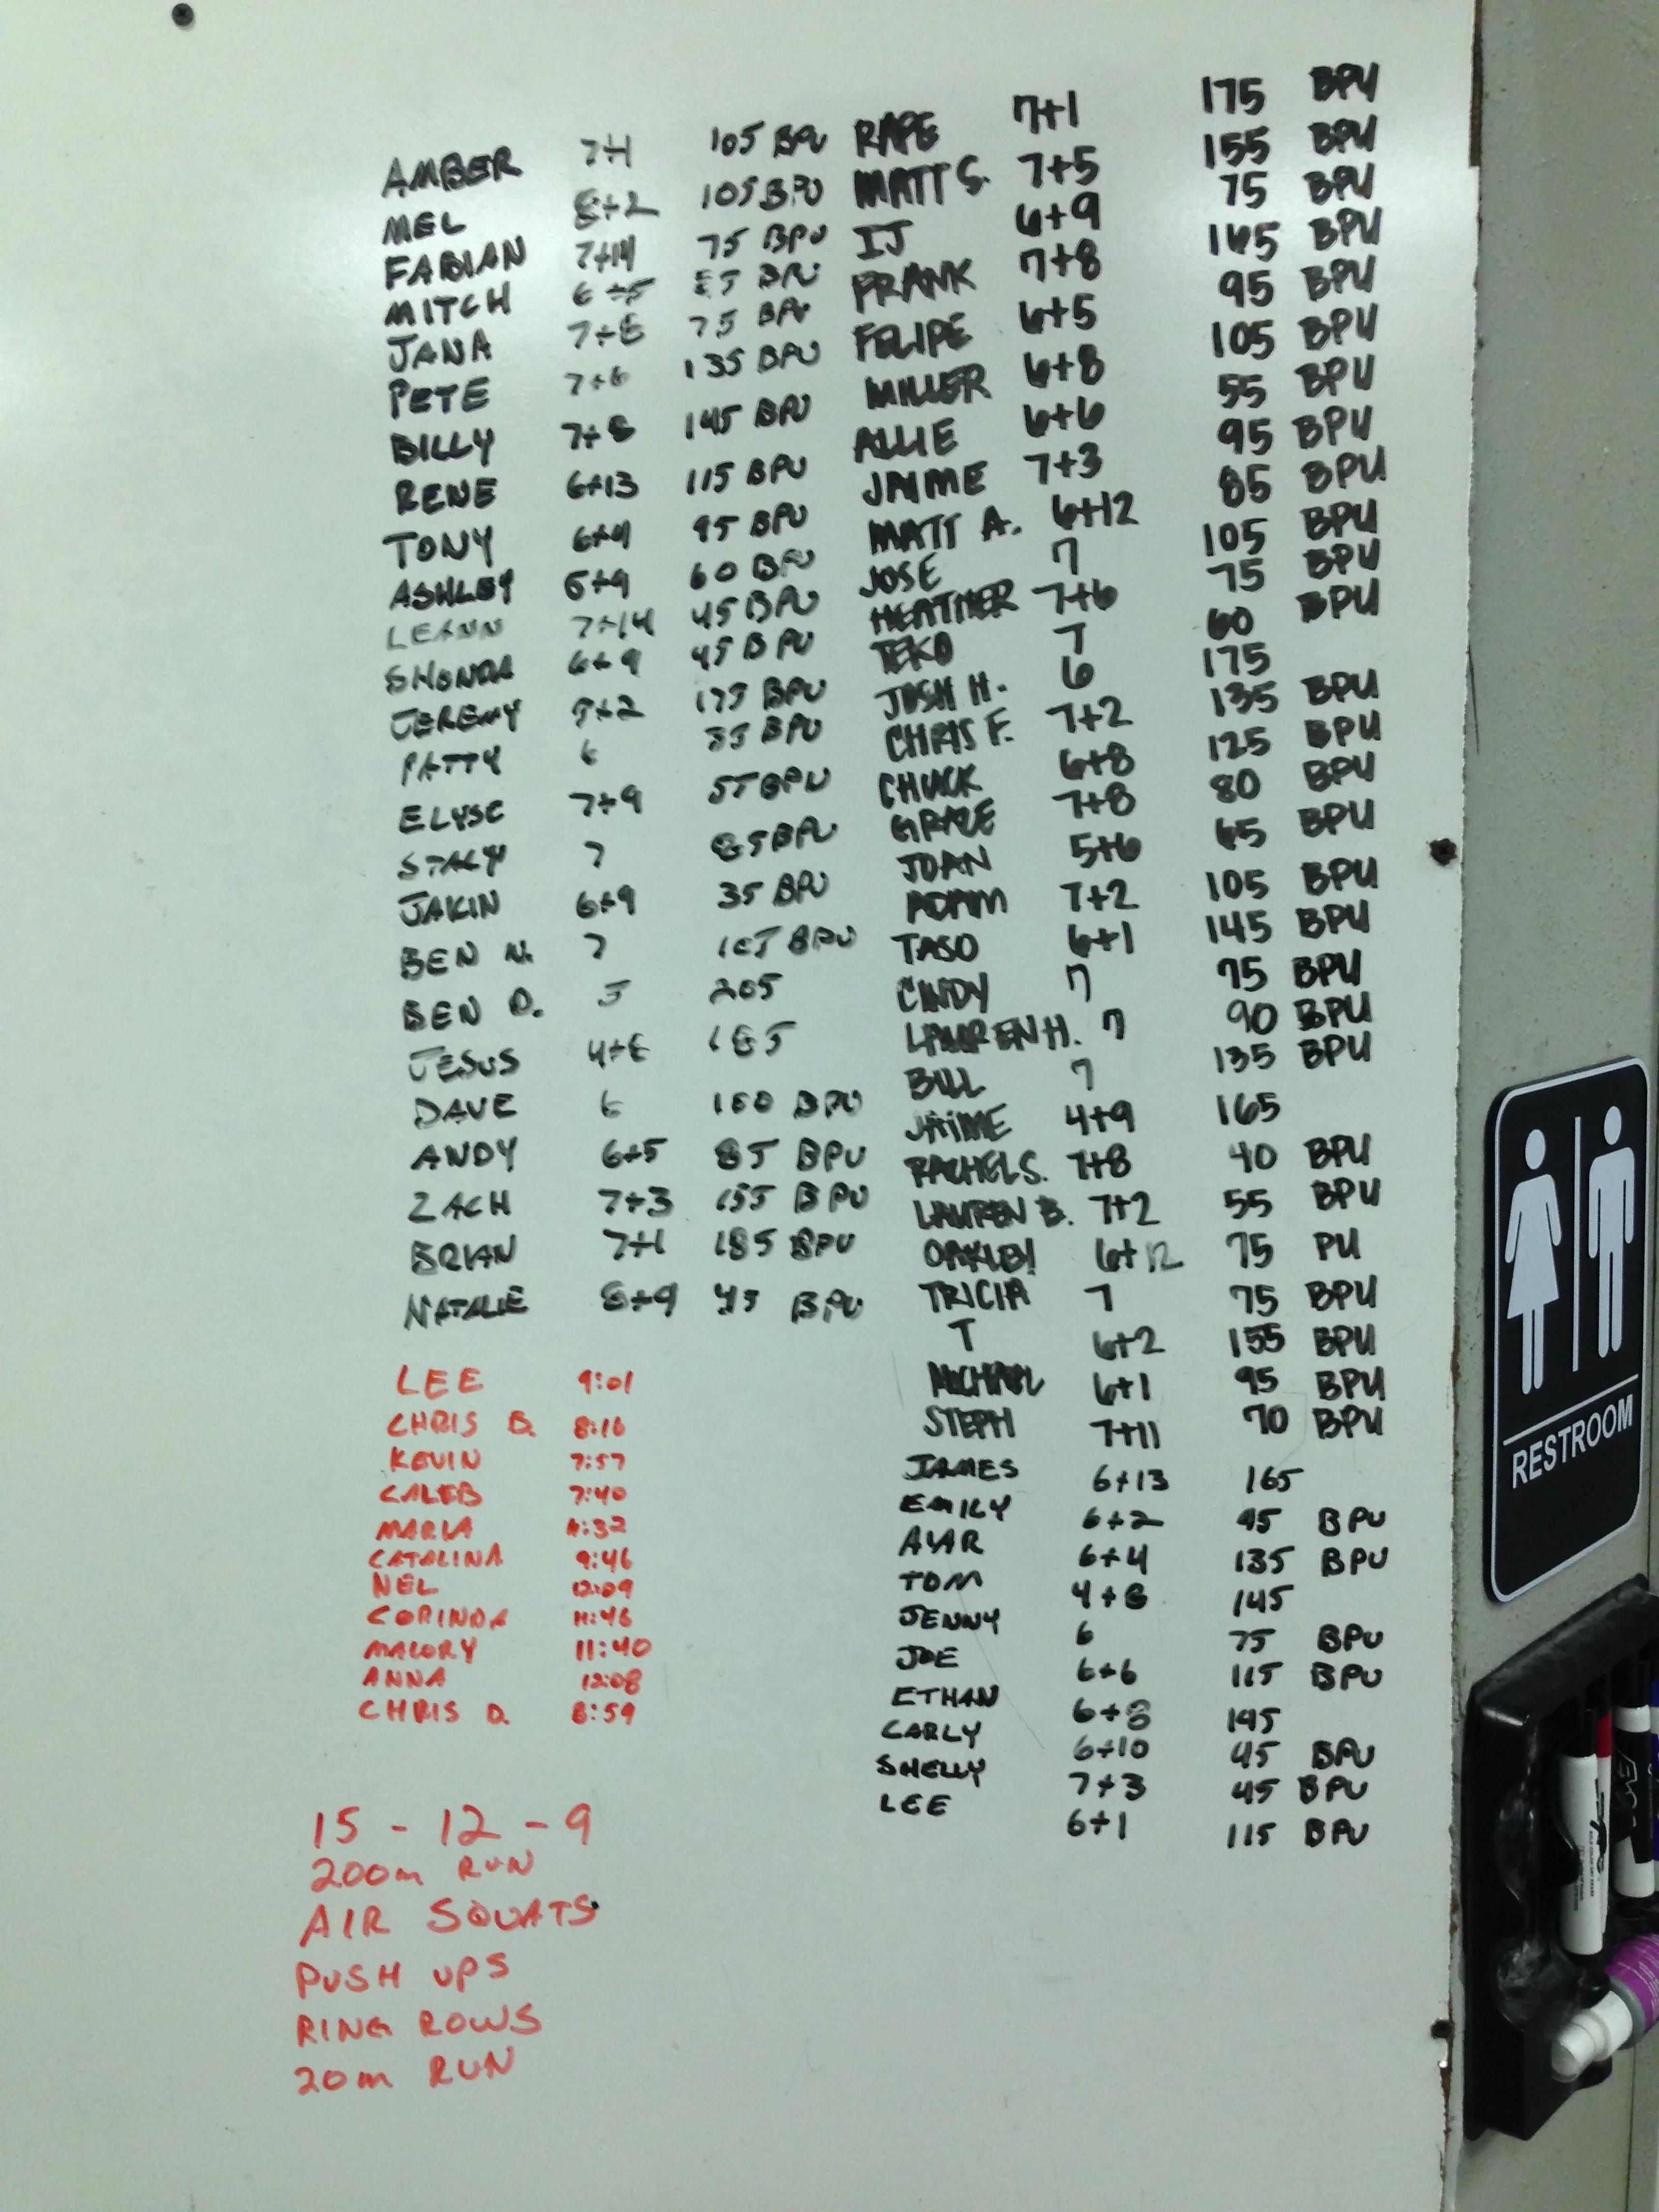 AMBER 7+1 105 BPU
MEL 8+2 105 BPU
FABIAN 7+14 75 BPU
MITCH 6+5 BPU
JANA 7+8 75 BPU
PETE 7+6 135 BPU
BILLY 7+8 145 BPU
RENE 6+13 115 BPU
TONY 6+9 95 BPU
ASHLEY 5+9 60 BPU
LEANN 7+14 45 BPU
SHONDA 6+9 45 BPU
JEREMY 175 BPU
PATTY 6 BPU
ELYSE 7+9 55 BPU
STACY 7 85 BPU
JAKIN 6+9 35 BPU
BEN N. 7 BPU
BEN D. 5 205
JESUS 4+8 185
DAVE 6 BPU
ANDY 6+5 85 BPU
ZACH 7+3 155 BPU
BRIAN 7+1 185 BPU
NATALIE 8+9 45 BPU
RAPE 7+1 175 BPU
MATT S. 7+5 155 BPU
IJ 6+9 75 BPU
FRANK 7+8 165 BPU
FELIPE 6+5 95 BPU
MILLER 6+8 105 BPU
ALLIE 6+6 55 BPU
JAIME 7+3 95 BPU
MATT A. 6+12 85 BPU
JOSE 7 105 BPU
HEATHER 7+6 75 BPU
TEKO 7 60 BPU
JOSH H. 6 175
CHRIS F. 7+2 135 BPU
CHUCK 6+8 125 BPU
GRACE 7+8 80 BPU
JOAN 5+6 65 BPU
ADAM 7+2 105 BPU
TASO 6+1 145 BPU
CINDY 7 75 BPU
LAUREN H. 7 90 BPU
BILL 7 135 BPU
JAIME 4+9 165
RACHEL S. 7+8 40 BPU
LAUREN B. 7+2 55 BPU
6+12 75 PU
TRICIA 7 75 BPU
T 6+2 155 BPU
MICHAEL 6+1 95 BPU
STEPH 7+11 70 BPU
JAMES 6+13 165
EMILY 6+2 95 BPU
6+4 135 BPU
TOM 4+8 145
JENNY 6 75 BPU
JOE 6+6 115 BPU
ETHAN 6+8 195
CARLY 6+10 45 BPU
SHELLY 7+3 45 BPU
LEE 6+1 115 BPU
LEE 9:01
CHRIS B. 8:16
KEVIN 7:57
CALEB 7:40
MARIA
CATALINA 9:46
NEL 12:09
CORINDA 11:46
MALORY 11:40
ANNA 12:08
CHRIS D. 8:59
15 - 12 - 9
200m RUN
AIR SQUATS
PUSH UPS
RING ROWS
20m RUN
RESTROOM